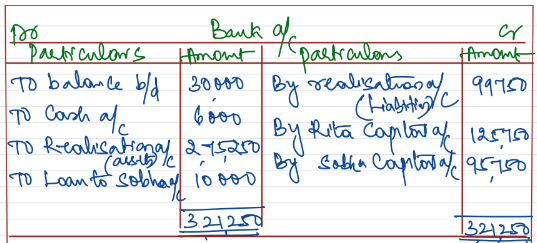 Dr Bank a/c Cr
Particulars Amount Particulars Amount
To balance b/d 30,000 By realisation a/c 99750
(Liabilities)
To Cash a/c 6000
By Rita Capital a/c 125,750
To Realisation a/c 2,75,250
(assets)
By Sobha Capital a/c 95,750
To Loan to Sobha a/c 10000
321250 321250